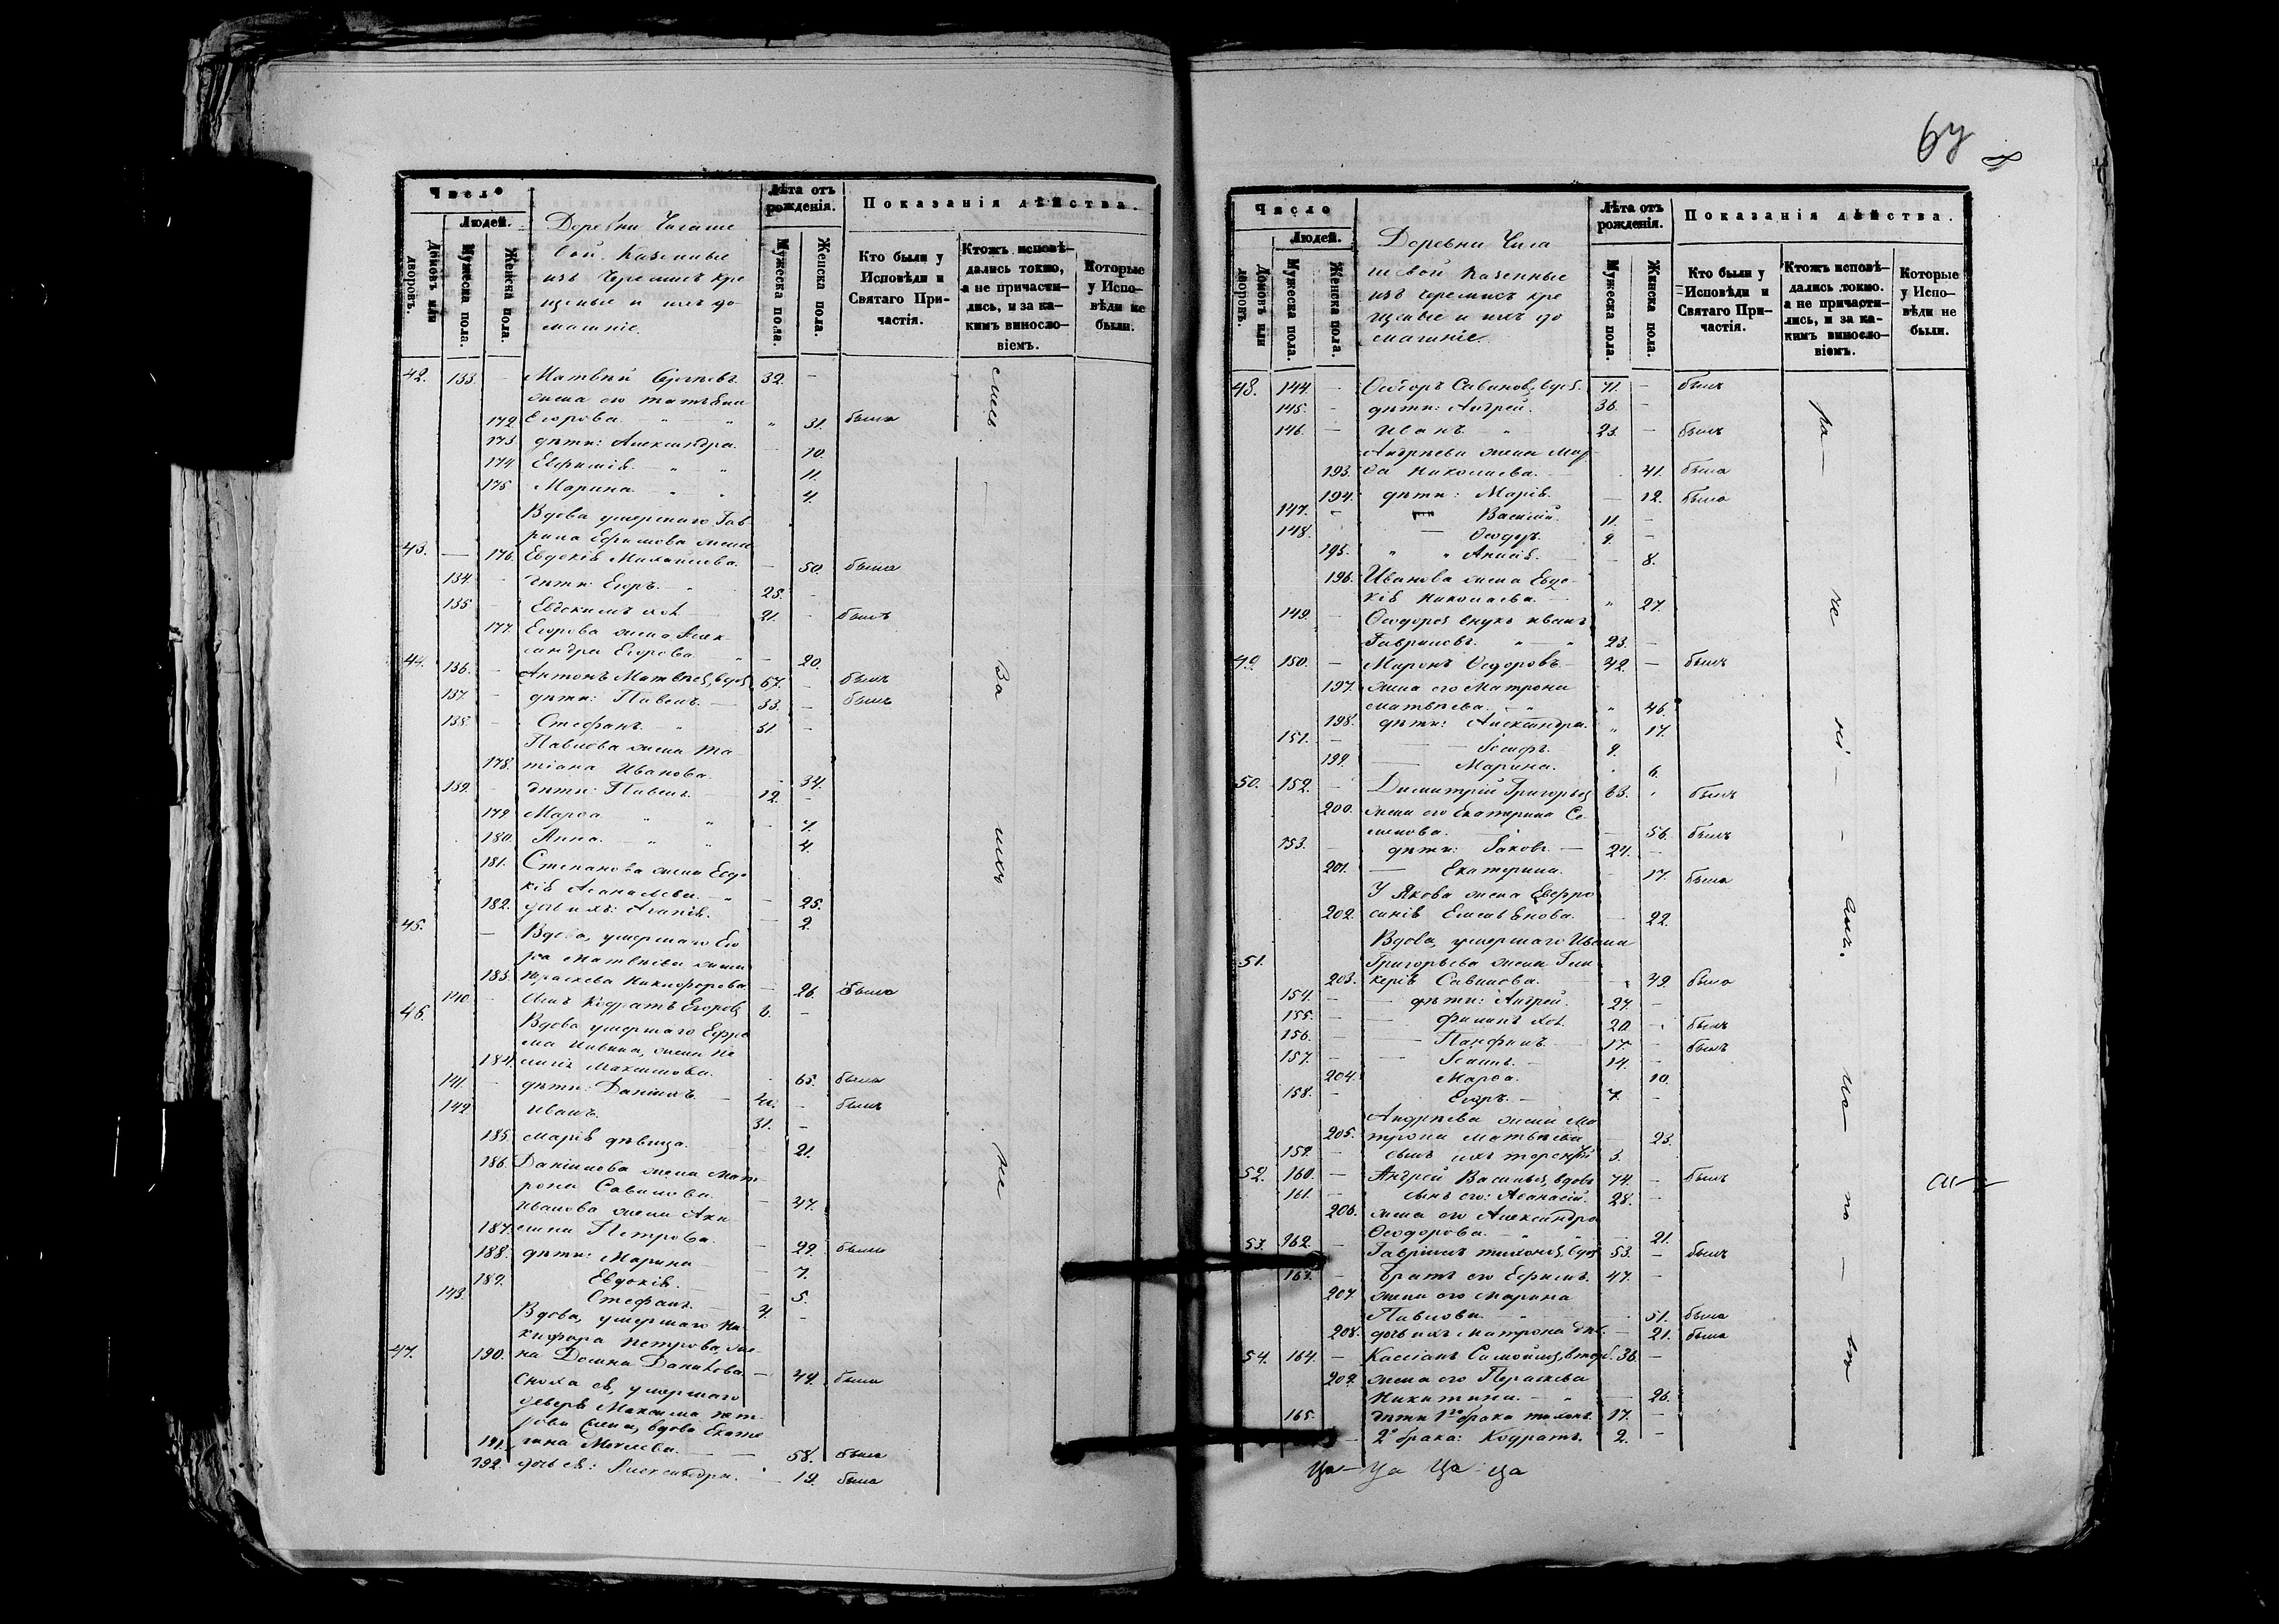 Число
Людей.
Домовъ или дворовъ.
Мужеска пола.
Женска пола.
Деревни Чигаше
вой казенные
изъ черемисъ кре
щеные и ихъ до
машніе.
Лѣта отъ рожденія.
Мужеска пола.
Женска пола.
Показанія дѣйства.
Кто были у Исповѣди и Святаго Причастія.
Ктожъ исповѣдались токмо, а не причастились, и за какимъ винословіемъ.
Которые у Исповѣди не были.
42. 133. — Матвей Сергѣевъ 32. —
жена его Татьяна
172 Егорова. " — " " 31. была
173. дѣти: Александра. — 10.
174. Евфимія. — " " 11.
175 Марина. — " 4.
Вдова умершаго Гав
рила Ефимова жена
43. — 176. Евдокія Михайлова. — 50. была
134. — дѣти: Егоръ. " 25. —
135 — Евдокимъ хол. 21. — былъ
177. Егорова жена Алек
сандра Егорова. " — 20.
44. 136. — Антонъ Матвѣев, вдов 67. — былъ
137. — дѣти: Павелъ. — 33. — былъ
138. — Стефанъ. " 31. —
Павлова жена Та
178. тіана Иванова. 34.
139. — дѣти: Павелъ. — 12. —
179 Марѳа. — " " — 7.
180. Анна. — " " 4.
181. Степанова жена Евдо
кія Аѳанасьева. — " — 25.
182. дочь ихъ: Агапія. — 2.
45. — Вдова, умершаго Его
ра Матвѣева жена
183. Праскева Никифорова — 26. была
140. — Сынъ Кодратъ Егоров 6. —
46. Вдова умершаго Ефре
184. Максимова. 65. была
141. — дѣти: Даніилъ. — — былъ
142 Иванъ. 31. —
185. Марія дѣвица. — 21.
186. Даніилова жена Мат
рона Савинова. — 47.
Иванова жена Аки
187. лина Петрова. — 29. была
188. дѣти: Марина — 7.
189. Евдокія. — — 5.
143. Стефанъ. — 4. —
Вдова, умершаго Ни
кифора Петрова, же
47. 190. на Домна Данилова. — 49. была
Сноха ея, умершаго
деверя Максима Пет
рова жена, вдова Екате
191. рина Моисеева. — 58. была
192. дочь ея: Александра. — 19. была
Число
Людей.
Домовъ или дворовъ.
Мужеска пола.
Женска пола.
Деревни Чига
шевой казенные
изъ черемисъ кре
щеные и ихъ до
машніе.
Лѣта отъ рожденія.
Мужеска пола.
Женска пола.
Показанія дѣйства.
Кто были у Исповѣди и Святаго Причастія.
Ктожъ исповѣдались токмо, а не причастились, и за какимъ винословіемъ.
Которые у Исповѣди не были.
48. 144. — Ѳедоръ Савинов, вдов. 71. — былъ
145. — дѣти: Андрей. 36. —
146. — Иванъ. — " 23. — былъ
Андреева жена Мар
193. ѳа Николаева. — 41. была
194. дѣти: Марія. — 12. была
147. — Василій. 11. —
148. — Ѳедоръ. 9. —
195. " " Анисія. — 8.
196. Иванова жена Евдо
кія Николаева. — " 27.
149. — Ѳеодоров внукъ Иванъ
Гавриловъ. " — " 23. —
49. 150. — Миронъ Ѳедоровъ — 42. — былъ
197. жена его Матрона
Матвѣева. — " " 46.
198. дѣти: Александра. " 17.
151. — — Іосифъ. 9.
199. — Марина. 6.
50. 152. — Димитрій Григорьев 63. " былъ
200. жена его Екатерина Се
менова. — — 56. былъ
153. — дѣти: Іаковъ. — 24. —
201. — Екатерина. — 17. была
У Якова жена Евфро
202. синія Емельянова. — 22.
Вдова, умершаго Ивана
51. Григорьева жена Гли
203. керія Савинова. — 49. была
154. — — дѣти: Андрей. 27. —
155. — — Филипъ хол. 20. — былъ
156. — — Панфилъ. — 17. — былъ
157. — — Іоаннъ. — 14. —
204. Марѳа. 10.
158. — Егоръ. — 7. —
Андреева жена Ма
205. трона Матвѣева — 23.
159. — сынъ ихъ Терентій 3.
52. 160. — Андрей Васильев, вдовъ 74. — былъ
161. — сынъ его: Аѳанасій. 28. —
206. жена его Александра
Ѳеодорова. — " — 21.
53. 162. — Гавріилъ Тихонов, вдов 53. — былъ
163. — братъ его Ефимъ. 47. —
207. жена его Марина
Павлова. — " 51. была
208. дочь ихъ Матрона дѣв. — 21. была
54. 164. — Кассіанъ Самойлов, втор б. 36. —
209. жена его Параскева
Никитина. — " — 26.
165. дѣти 1го брака Тихонъ. 17. —
— 2о брака: Кодратъ. 2. —